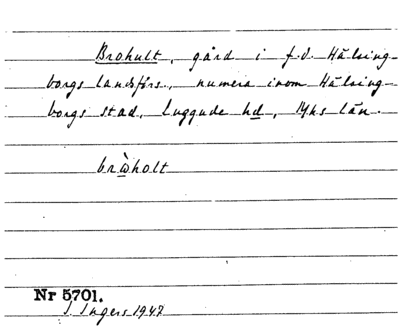 Brohult, gård i f.d. Hälsing-
borgs landsförs., numera inom Hälsing-
borgs stad, Luggude hd, Mhs län.
brẁholt
Nr 5701.
I. Ingers 1947